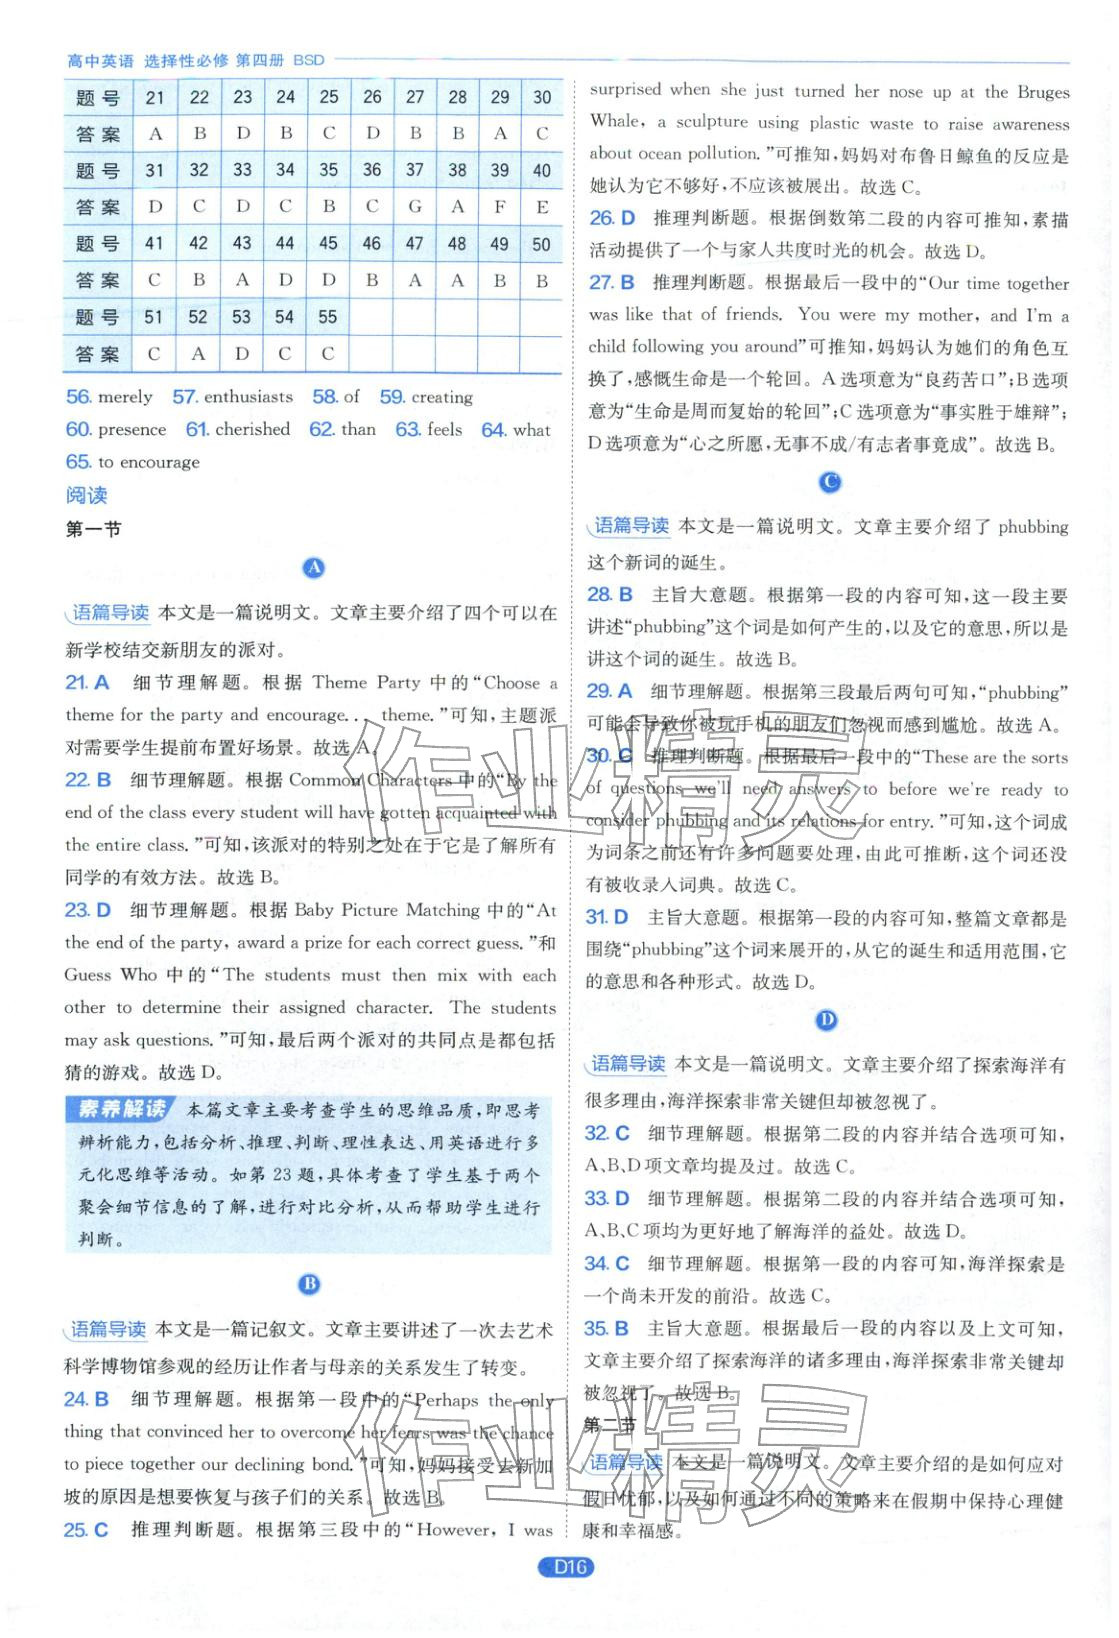 高中英语 选择性必修 第四册 BSD
题号 21 22 23 24 25 26 27 28 29 30
答案 A B D B C D B B A C
题号 31 32 33 34 35 36 37 38 39 40
答案 D C D C B C G A F E
题号 41 42 43 44 45 46 47 48 49 50
答案 C B A D D B A A B B
题号 51 52 53 54 55
答案 C A D C C
56. merely 57. enthusiasts 58. of 59. creating
60. presence 61. cherished 62. than 63. feels 64. what
65. to encourage
阅读
第一节
A
语篇导读 本文是一篇说明文。文章主要介绍了四个可以在
新学校结交新朋友的派对。
21. A 细节理解题。根据 Theme Party 中的“Choose a
theme for the party and encourage... theme.”可知,主题派
对需要学生提前布置好场景。故选 A。
22. B 细节理解题。根据 Common Characters 中的“By the
end of the class every student will have gotten acquainted with
the entire class.”可知,该派对的特别之处在于它是了解所有
同学的有效方法。故选 B。
23. D 细节理解题。根据 Baby Picture Matching 中的“At
the end of the party, award a prize for each correct guess.”和
Guess Who 中的“The students must then mix with each
other to determine their assigned character. The students
may ask questions.”可知,最后两个派对的共同点是都包括
猜的游戏。故选 D。
素养解读 本篇文章主要考查学生的思维品质,即思考
辨析能力,包括分析、推理、判断、理性表达、用英语进行多
元化思维等活动。如第 23 题,具体考查了学生基于两个
聚会细节信息的了解,进行对比分析,从而帮助学生进行
判断。
B
语篇导读 本文是一篇记叙文。文章主要讲述了一次去艺术
科学博物馆参观的经历让作者与母亲的关系发生了转变。
24. B 细节理解题。根据第一段中的“Perhaps the only
thing that convinced her to overcome her fears was the chance
to piece together our declining bond.”可知,妈妈接受去新加
坡的原因是想要恢复与孩子们的关系。故选 B。
25. C 推理判断题。根据第三段中的“However, I was
surprised when she just turned her nose up at the Bruges
Whale, a sculpture using plastic waste to raise awareness
about ocean pollution.”可推知,妈妈对布鲁日鲸鱼的反应是
她认为它不够好,不应该被展出。故选 C。
26. D 推理判断题。根据倒数第二段的内容可推知,素描
活动提供了一个与家人共度时光的机会。故选 D。
27. B 推理判断题。根据最后一段中的“Our time together
was like that of friends. You were my mother, and I'm a
child following you around”可推知,妈妈认为她们的角色互
换了,感慨生命是一个轮回。A 选项意为“良药苦口”;B 选项
意为“生命是周而复始的轮回”;C 选项意为“事实胜于雄辩”;
D 选项意为“心之所愿,无事不成/有志者事竟成”。故选 B。
C
语篇导读 本文是一篇说明文。文章主要介绍了 phubbing
这个新词的诞生。
28. B 主旨大意题。根据第一段的内容可知,这一段主要
讲述“phubbing”这个词是如何产生的,以及它的意思,所以是
讲这个词的诞生。故选 B。
29. A 细节理解题。根据第三段最后两句可知,“phubbing”
可能会导致你被玩手机的朋友们忽视而感到尴尬。故选 A。
30. C 推理判断题。根据最后一段中的“These are the sorts
of questions we'll need answers to before we're ready to
consider phubbing and its relations for entry.”可知,这个词成
为词条之前还有许多问题要处理,由此可推断,这个词还没
有被收录入词典。故选 C。
31. D 主旨大意题。根据第一段的内容可知,整篇文章都是
围绕“phubbing”这个词来展开的,从它的诞生和适用范围,它
的意思和各种形式。故选 D。
D
语篇导读 本文是一篇说明文。文章主要介绍了探索海洋有
很多理由,海洋探索非常关键但却被忽视了。
32. C 细节理解题。根据第二段的内容并结合选项可知,
A、B、D 项文章均提及过。故选 C。
33. D 细节理解题。根据第二段的内容并结合选项可知,
A、B、C 项均为更好地了解海洋的益处。故选 D。
34. C 细节理解题。根据第一段的内容可知,海洋探索是
一个尚未开发的前沿。故选 C。
35. B 主旨大意题。根据最后一段的内容以及上文可知,
文章主要介绍了探索海洋的诸多理由,海洋探索非常关键却
被忽视了。故选 B。
第二节
语篇导读 本文是一篇说明文。文章主要介绍的是如何应对
假日忧郁,以及如何通过不同的策略来在假期中保持心理健
康和幸福感。
D16
作业精灵
作业精灵